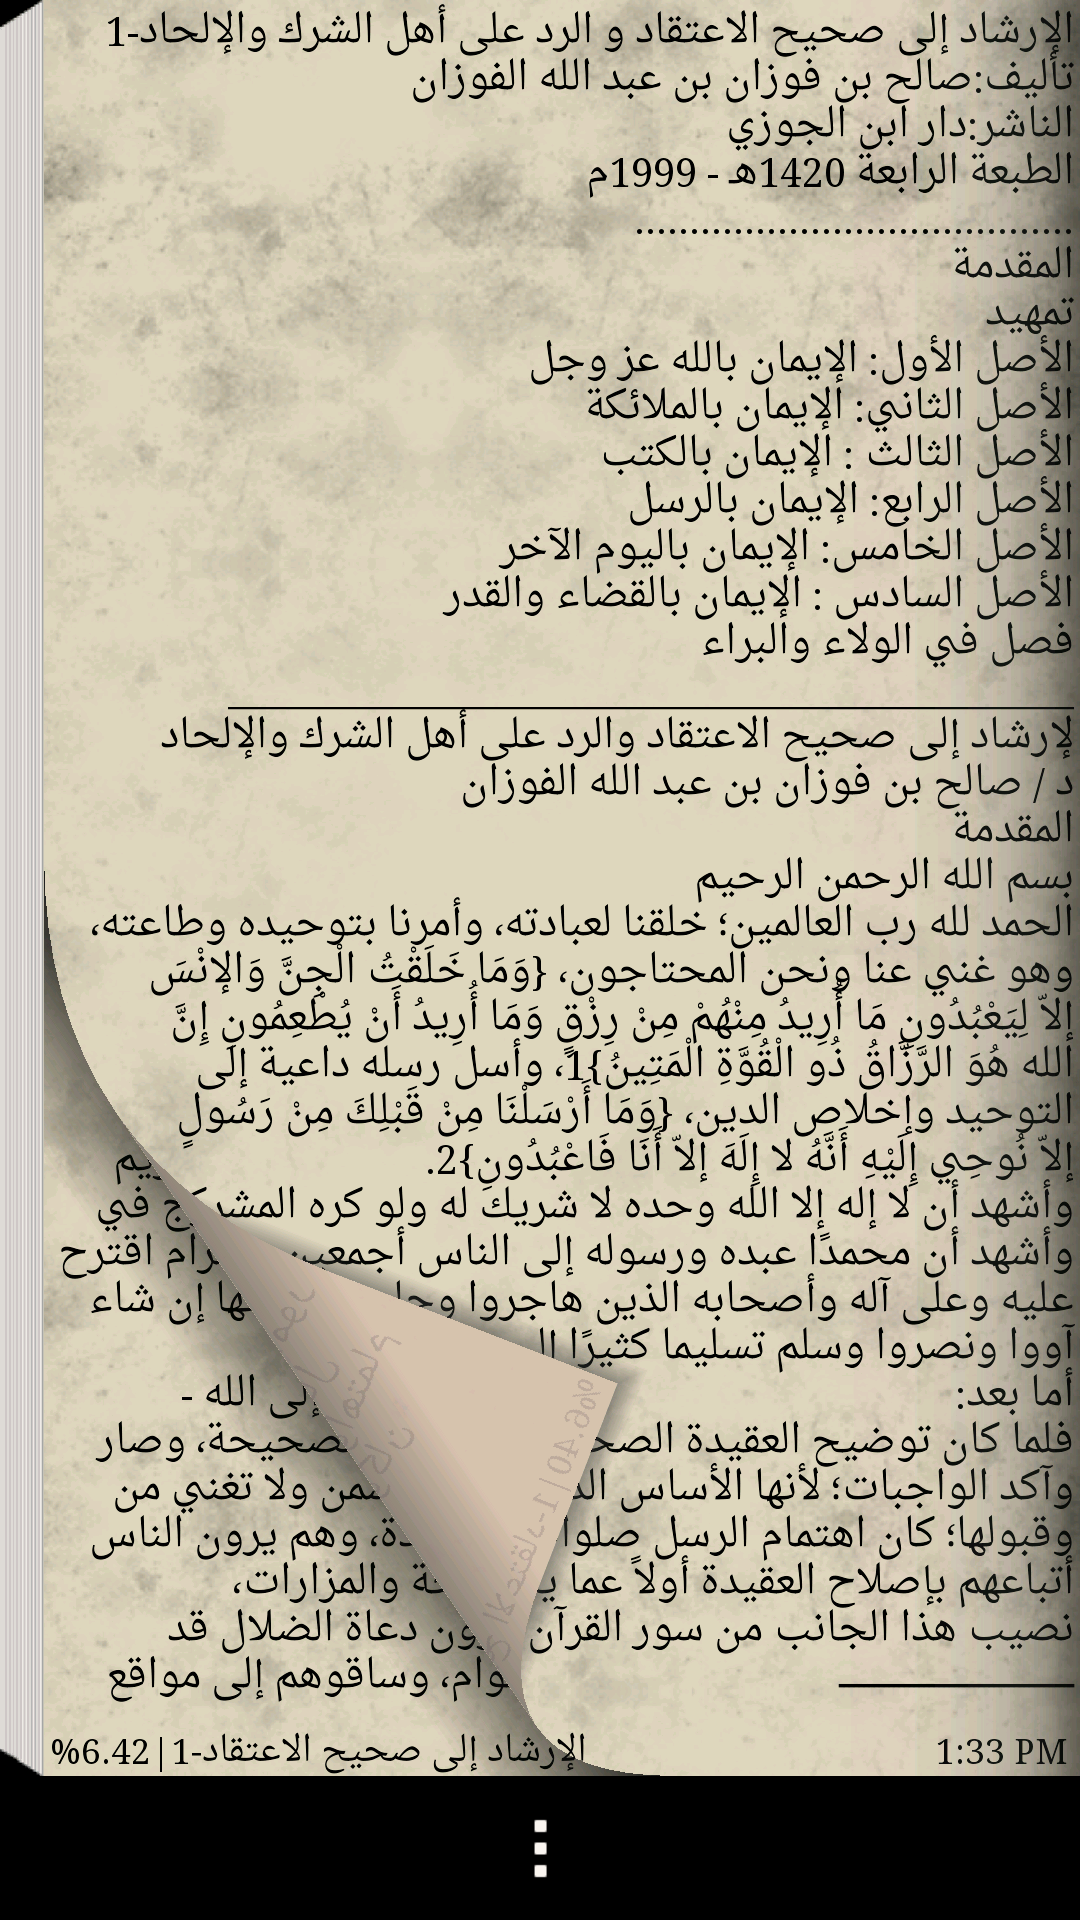 الإرشاد إلى صحيح الاعتقاد و الرد على أهل الشرك والإلحاد-1
تأليف:صالح بن فوزان بن عبد الله الفوزان
الناشر:دار ابن الجوزي
الطبعة الرابعة 1420هـ - 1999م
........................................
المقدمة
تمهيد
الأصل الأول: الإيمان بالله عز وجل
الأصل الثاني: الإيمان بالملائكة
الأصل الثالث : الإيمان بالكتب
الأصل الرابع: الإيمان بالرسل
الأصل الخامس: الإيمان باليوم الآخر
الأصل السادس : الإيمان بالقضاء والقدر
فصل في الولاء والبراء
لإرشاد إلى صحيح الاعتقاد والرد على أهل الشرك والإلحاد
د / صالح بن فوزان بن عبد الله الفوزان
المقدمة
بسم الله الرحمن الرحيم
الحمد لله رب العالمين؛ خلقنا لعبادته، وأمرنا بتوحيده وطاعته،
وهو غني عنا ونحن المحتاجون، {وَمَا خَلَقْتُ الْجِنَّ وَالإنْسَ
إلاّ لِيَعْبُدُونِ مَا أُرِيدُ مِنْهُمْ مِنْ رِزْقٍ وَمَا أُرِيدُ أَنْ يُطْعِمُونِ إِنَّ
الله هُوَ الرَّزَّاقُ ذُو الْقُوَّةِ الْمَتِينُ}1، وأسل رسله داعية إلى
التوحيد وإخلاص الدين، {وَمَا أَرْسَلْنَا مِنْ قَبْلِكَ مِنْ رَسُولٍ
إلاّ نُوحِي إِلَيْهِ أَنَّهُ لا إِلَهَ إلاّ أَنَا فَاعْبُدُونِ}2.
وأشهد أن لا إله إلا الله وحده لا شريك له ولو كره في
وأشهد أن محمدًا عبده ورسوله إلى الناس أجمعين اقترح
عليه وعلى آله وأصحابه الذين هاجروا إن شاء
آووا ونصروا وسلم تسليما كثيرًا
أما بعد: إلى الله -
فلما كان توضيح العقيدة وصار
وآكد الواجبات؛ لأنها الأساس ولا تغني من
وقبولها؛ كان اهتمام الرسل وهم يرون الناس
أتباعهم بإصلاح العقيدة أولاً عما والمزارات،
نصيب هذا الجانب من سور القرآن دعاة الضلال قد
وساقوهم إلى مواقع
1:33 PM
الإرشاد إلى صحيح الاعتقاد-1|6.42%